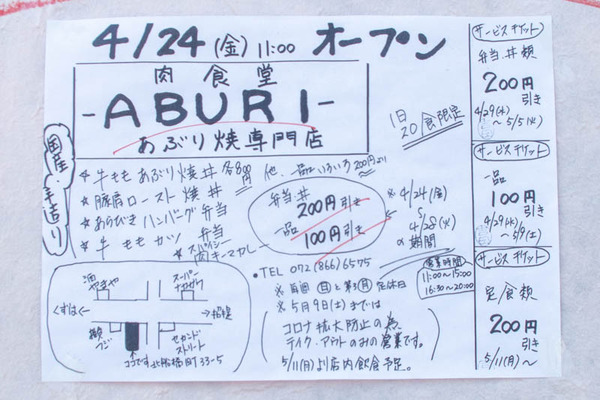 4/24(金) 11:00 オープン
肉食堂
-ABURI-
あぶり焼専門店
1日20食限定
国産・手造り
★ 牛ももあぶり焼丼 各800円 他、一品いろいろ200円より
★ 豚肩ロースト焼丼
★ あらびきハンバーグ弁当
★ 牛ももカツ弁当
★ スパイシー肉キーマカレー
弁当・丼
200円引き
一品
100円引き
※ 4/24(金)
〜
4/28(火)
の期間
●TEL 072(866)6575
営業時間
11:00〜15:00
16:30〜20:00
※ 毎週(日)と第3(月)定休日
※ 5月9日(土)までは
コロナ拡大防止の為
テイク・アウトのみの営業です。
5/11(月)より店内飲食予定。
酒やまや
スーパーナカガワ
くずは
招提
セカンドストリート
ココです 北船橋町33-5
サービスチケット
弁当、丼類
200円引き
4/29(水)
〜5/5(火)
サービスチケット
一品
100円引き
4/29(水)
〜5/9(土)
サービスチケット
定食類
200円引き
5/11(月)〜